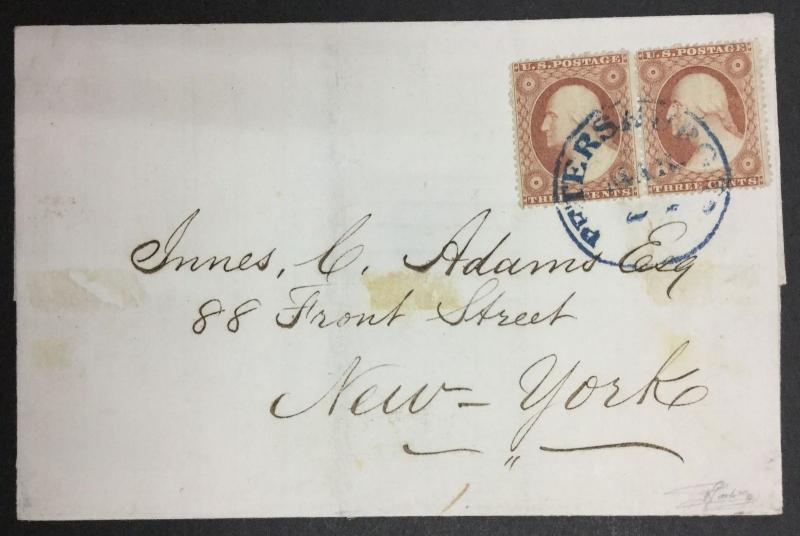 U.S. POSTAGE U.S. POSTAGE
THREE CENTS THREE CENTS
PETERSBURG
MAR
Innes. C. Adams Esq
88 Front Street
New-York